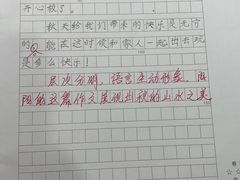 开心极了。
秋天给我们带来的快乐是无穷
的，能在这时候和家人一起出去玩
是多么快乐！
层次分明，语言生动形象。
这篇作文展现出秋的山水之美